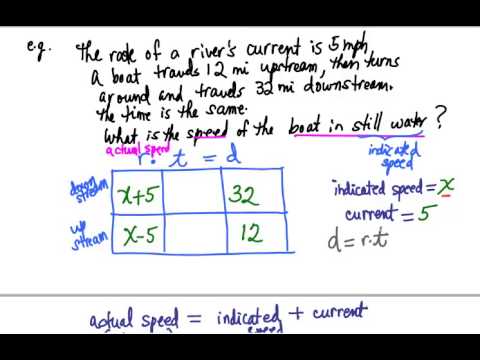 e.g. The rate of a river's current is 5 mph,
A boat travels 12 mi upstream, then turns
around and travels 32 mi downstream.
The time is the same.
What is the speed of the boat in still water?
actual speed
indicated
speed
r · t = d
down
stream
x+5 32
up
stream
x-5 12
indicated speed = x
current = 5
d = r.t
actual speed = indicated + current
speed